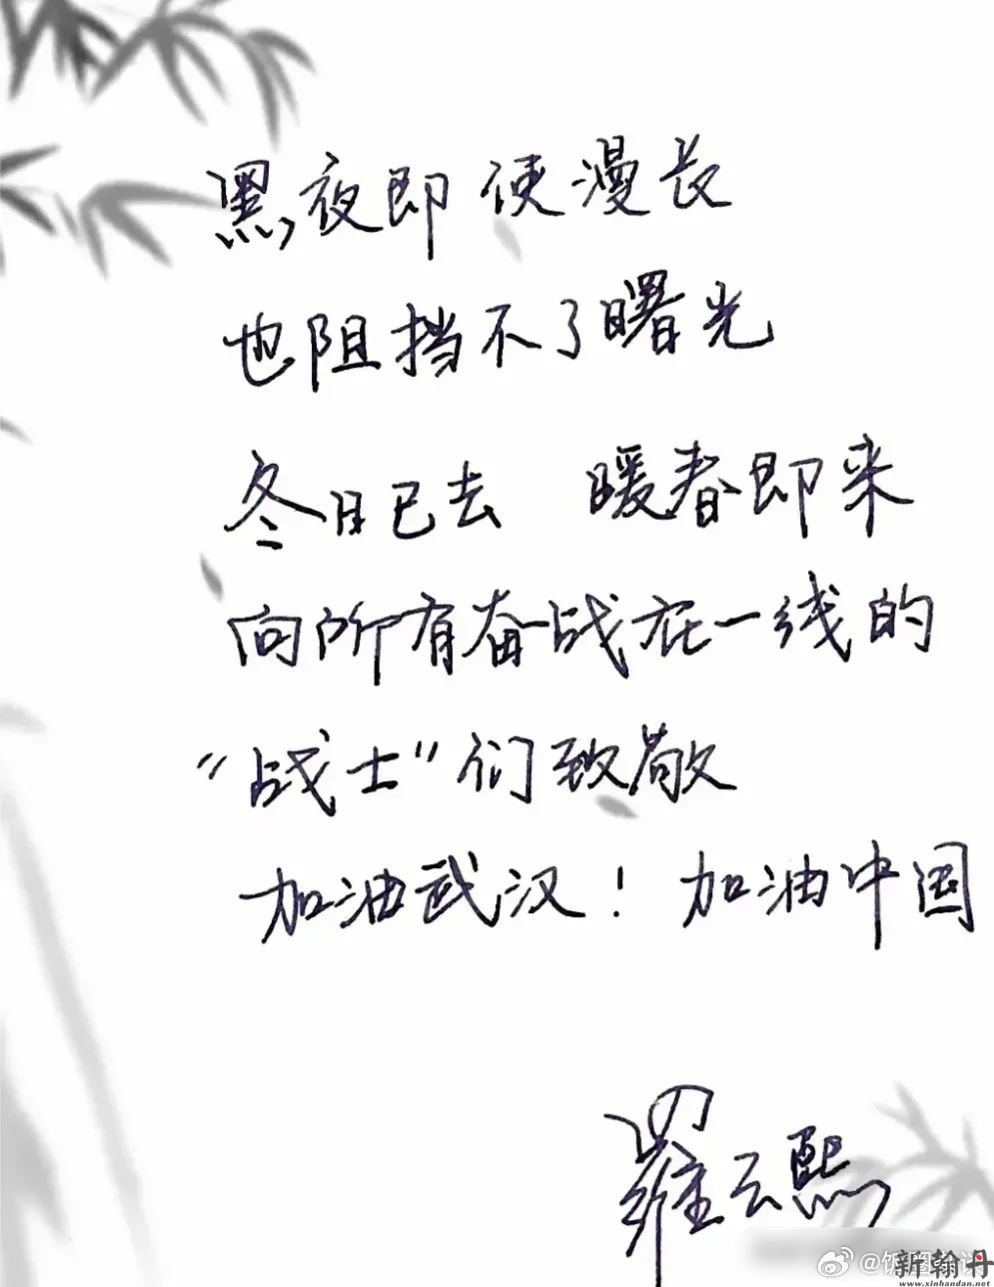 黑夜即使漫长
也阻挡不了曙光
冬日已去 暖春即来
向所有奋战在一线的
“战士”们致敬
加油武汉！加油中国
罗云熙
新翰丹
www.xinhandan.net